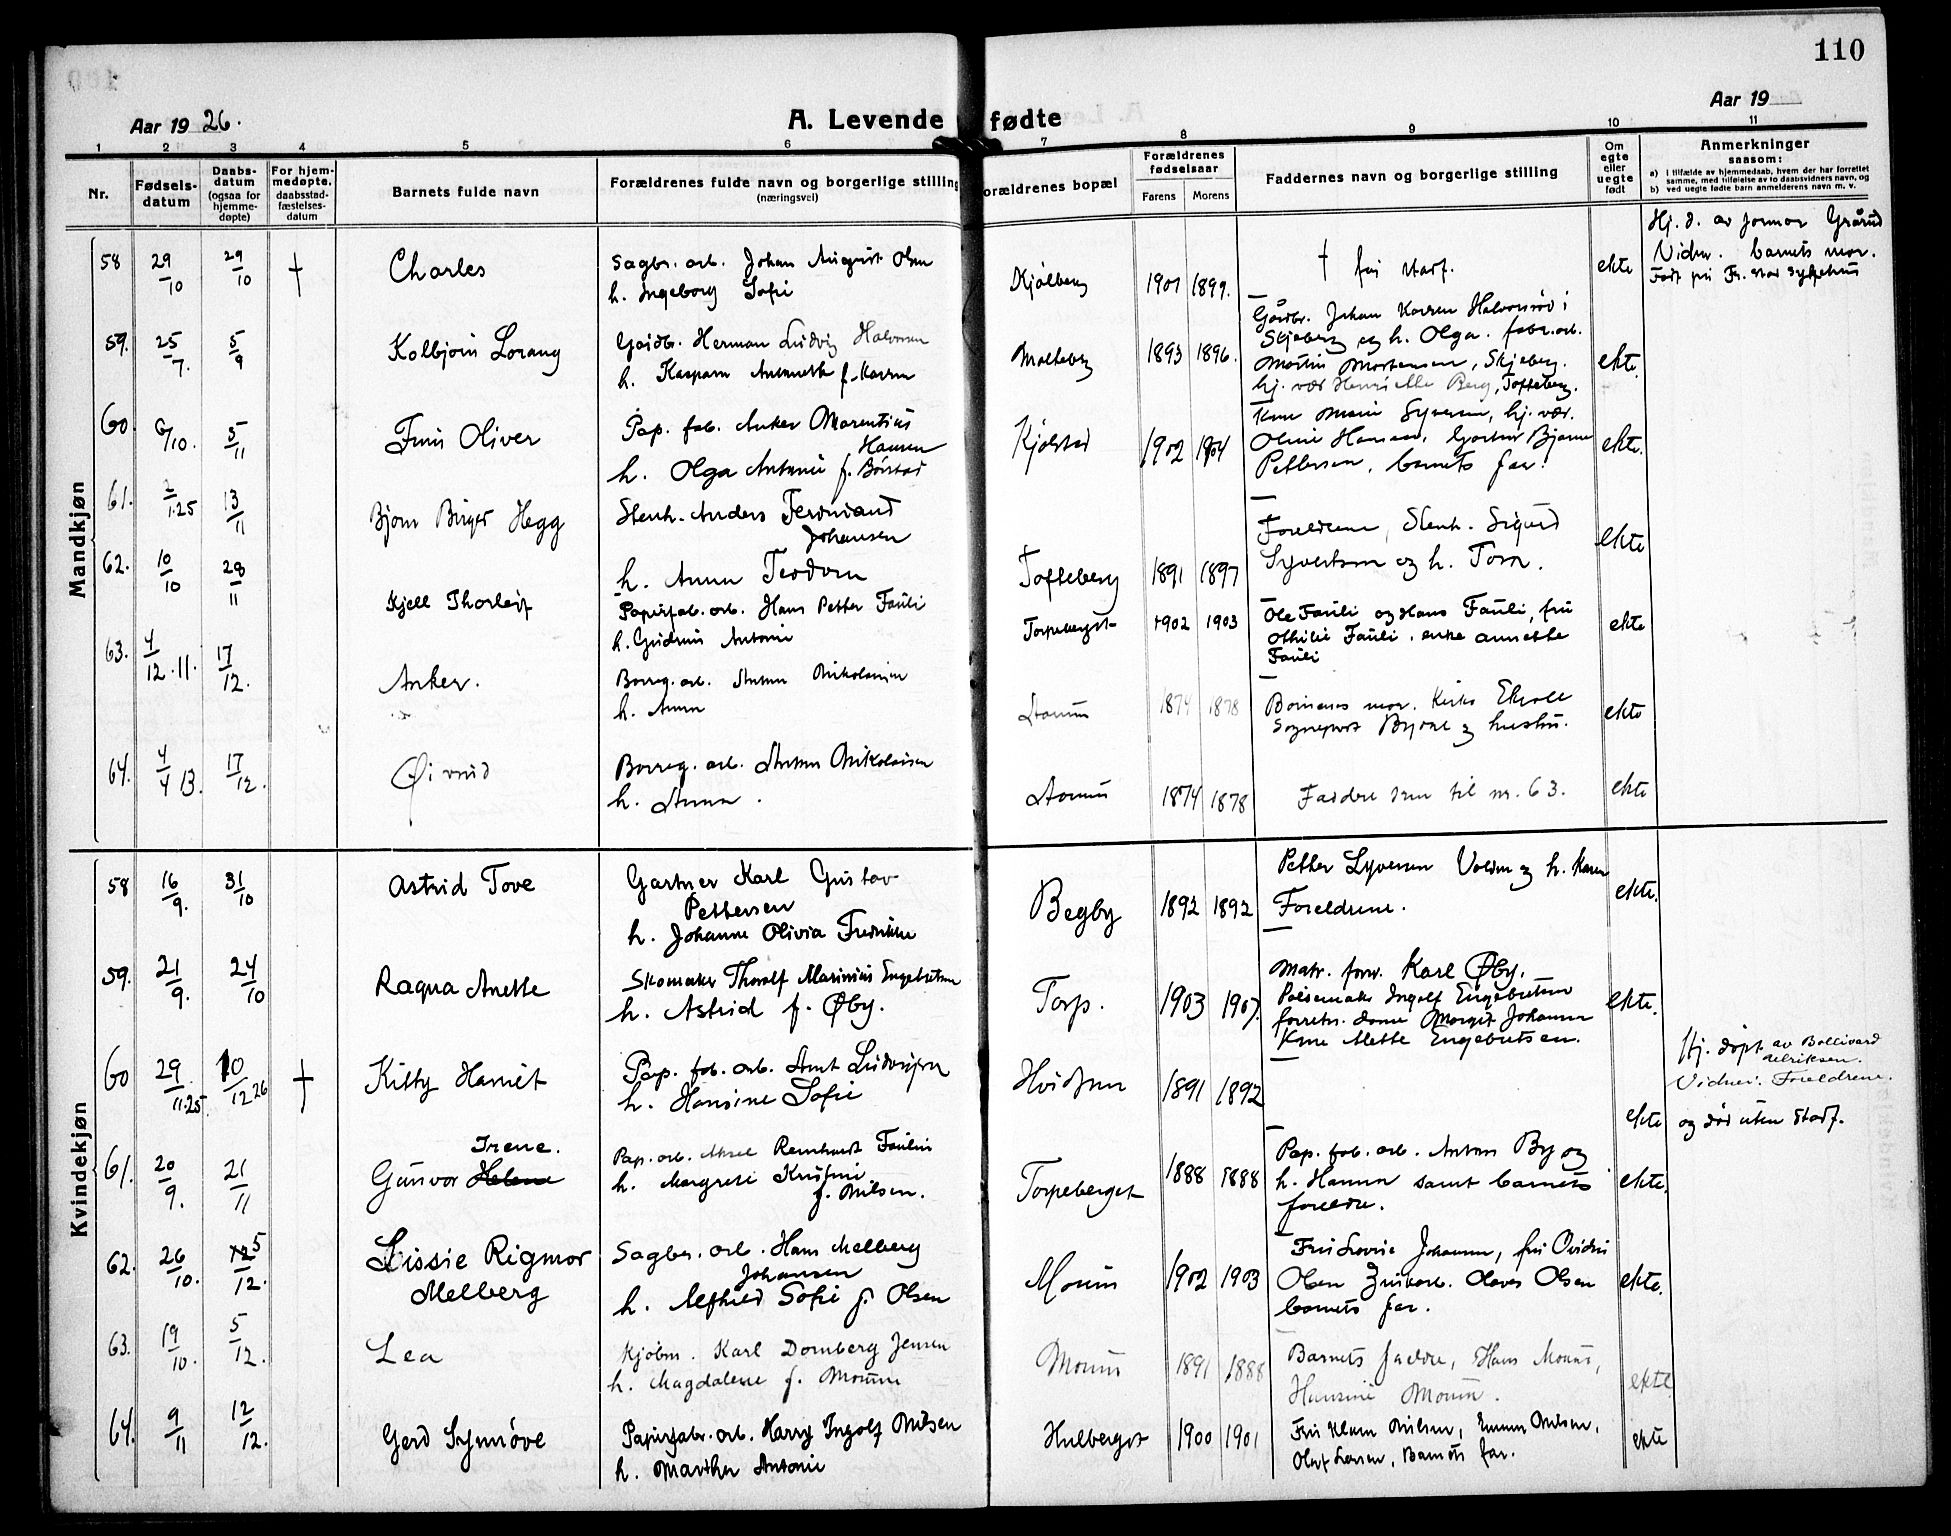 110
Aar 1926.
A. Levende fødte
Aar 19
1 2 3 4 5 6 7 8 9 10 11
Nr.
Fødsels-
datum
Daabs-
datum
(ogsaa for
hjemme-
døpte)
For hjem-
medøpte,
daabsstad-
fæstelses-
datum
Barnets fulde navn
Forældrenes fulde navn og borgerlige stilling
(næringsvei)
orældrenes bopæl
Forældrenes
fødselsaar
Farens Morens
Faddernes navn og borgerlige stilling
Om
egte
eller
uegte
født
Anmerkninger
saasom:
a) i tilfælde av hjemmedaab, hvem der har forrettet
samme, med tilføielse av to daabsvidners navn, og
b) ved uegte fødte barn anmelderens navn m. v.
Mandkjøn
58 29/10 29/10 † Charles
Sagbr. arb. Johan August Olsen
h. Ingeborg Sofie
Kjølberg 1901 1899.
† før stadf.
ekte
Hj. d. av jormor Grårud
Vidn. barnets mor.
Født på Fr.stad sykehus
59. 25/7. 5/9 Kolbjørn Lorang
Gårdb. Herman Ludvig Halvorsen
h. Kaspara Antonette f. Karren
1893 1896.
Gårdbr. Johan Karren Halvorsrød i
Skjeberg og h. Olga. fabr. arb.
Martin Mortensen, Skjeberg.
hj. vær Henriette Berg, Tofteberg.
ekte.
60. 6/10. 5/11 Finn Oliver
Pap. fab. Anker Marentius
Hansen
h. Olga Antonie f. Børstad
Kjølstad 1902 1904
Kone Marie Syversen, hj. vær.
Oline Hansen, Gartner Bjarne
Pettersen, barnets far.
ekte.
61. 2/1.25 13/11 Bjørn Birger Hegg
Stenh. Anders Ferdinand
Johansen
h. Anna Teodora
Tofteberg 1891 1897
Foreldrene, Stenh. Sigurd
Syvertsen og h. Tora.
ekte
62. 10/10 28/11 Kjell Thorleif
Papirfab. arb. Hans Petter Fauli
h. Gudrun Antonie
Torpeberget 1902 1903
Ole Fauli og Hans Fauli, fru
Othilie Fauli, enke Annette
Fauli
ekte
63. 4/12.11. 17/12. Anker.
Borreg. arb. Anton Nikolaisen
h. Anna
1874 1878
Barnenes mor. Kirkes. Ekvoll
Sogneprest Bjørne og hustru.
ekte
64. 4/4 13. 17/12. Øivind
Borreg. arb. Anton Nikolaisen
h. Anna.
1874 1878
Faddere som til nr. 63.
ekte
Kvindekjøn
58 16/9. 31/10 Astrid Tove
Gartner Karl Gustav
Pettersen
h. Johanne Olivia Fredrikke
Begby 1892 1892
Petter Syversen Volden og h. Karen
Foreldrene.
ekte.
59. 21/9. 24/10 Ragna Anette
Skomaker Thoralf Marinius Engebretsen
h. Astrid f. Øby.
Torp. 1903 1907.
Matr. forv. Karl Øby.
Pølsemaker Ingolf Engebretsen
forretn. dame Margit Johansen
Kone Mette Engebretsen.
ekte.
60 29/11.25. 10/12 26 † Kitty Harriet
Pap. fab. arb. Arnt Ludvigsen
h. Hansine Sofie
Hvidsten 1891 1892
ekte
Hj. døpt av Bollivard
Ulriksen.
Vidner: Foreldrene.
og død uten stadf.
61. 20/9. 21/11 Gunvor Helene Irene.
Pap. arb. Aksel Reinhardt Faulin
h. Margrete Kristine
f. Nilsen.
Torpeberget 1888 1888
Pap. fab. arb. Anton By og
h. Hanna samt barnets
foreldre.
ekte.
62. 26/10. 5/12. Lissie Rigmor
Melberg
Sagbr. arb. Hans Melberg
Johansen
h. Alfhild Sofie f. Olsen
Moum 1902 1903
Fru Lovise Johansen, fru Ovidia
Olsen Olaves Olsen
barnets far.
ekte.
63. 19/10. 5/12. Lea
Kjøbm. Karl Dornberg Jensen
h. Magdalene f. Moum
Moum 1891 1888
Barnets foreldre, Hans Moum,
Hansine Moum.
ekte
64. 9/11 12/12. Gerd Synnøve
Papirfabr. arb. Harry Ingolf Nilsen
h. Marthea Antonie
Hulberget 1900 1901
Fru Nilsen, Emma Nilsen,
Olaf Larsen, Barnets far.
ekte